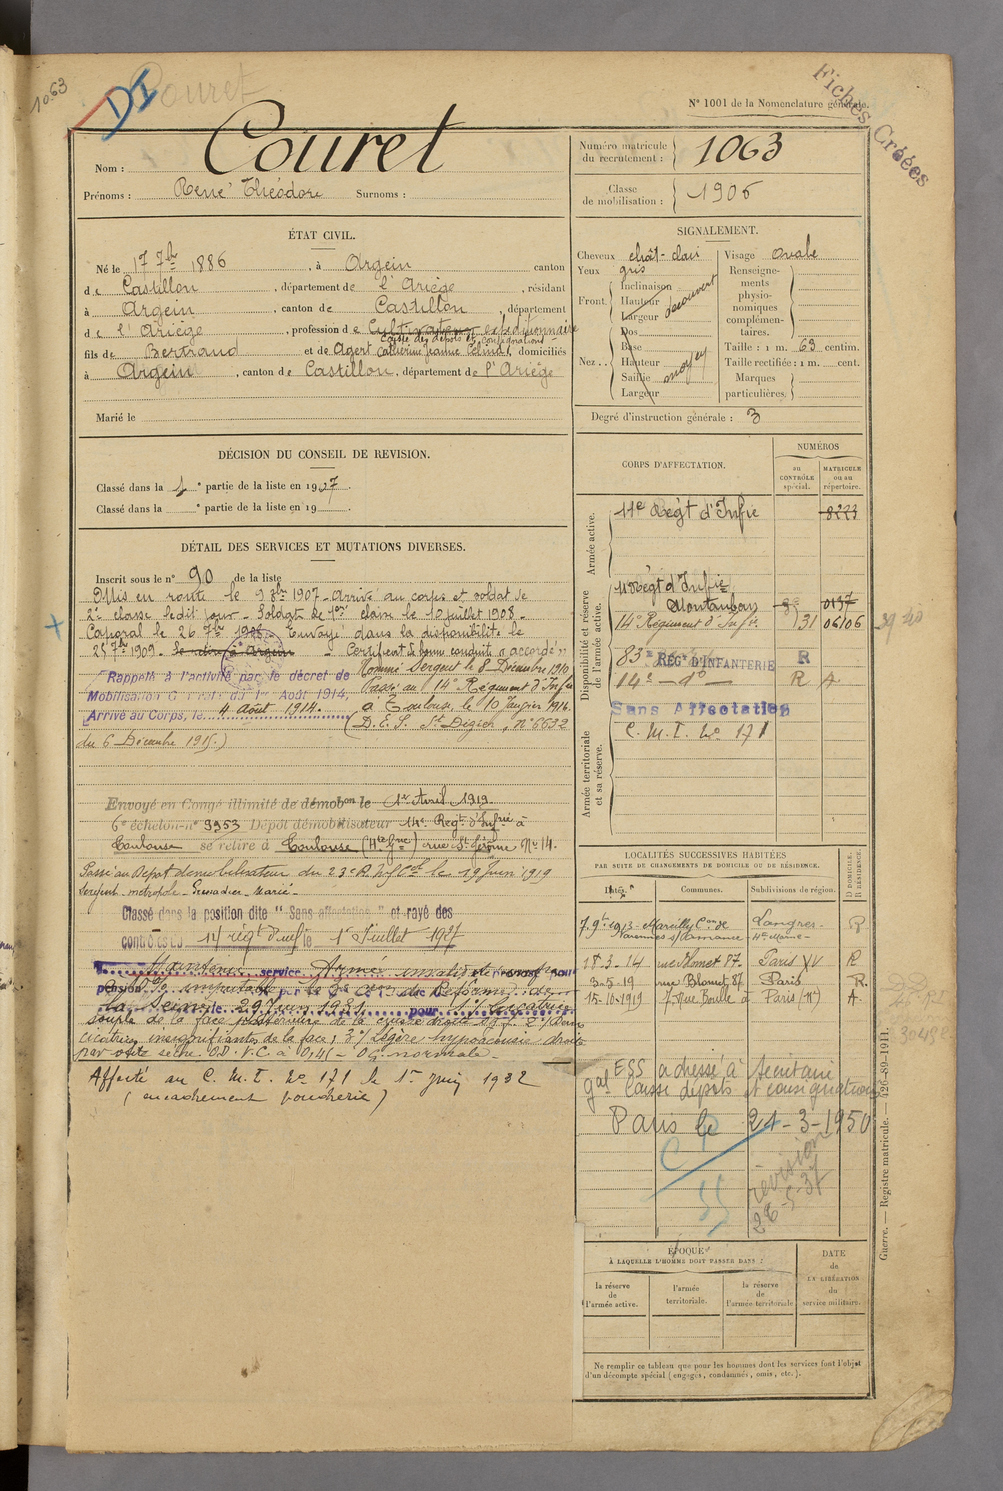 1063
DI
Couret
Fiches Créées
N° 1001 de la Nomenclature générale.
Nom : Couret
Prénoms : René Théodore Surnoms :
Numéro matricule du recrutement : 1063
Classe de mobilisation : 1906
ÉTAT CIVIL.
Né le 17 7bre 1886, à Argein canton
de Castillon, département de l'Ariège, résidant
à Argein, canton de Castillon, département
de l'Ariège, profession de Cultivateur expéditionnaire
Caisse des dépôts et consignations
fils de Bertrand et de Agert Catherine Jeanne, domiciliés
à Argein, canton de Castillon, département de l'Ariège
Marié le
SIGNALEMENT.
Cheveux chât-clair
Yeux gris
Front
Inclinaison
Hauteur
Largeur
découvert
Nez
Dos
Base
Hauteur
Saillie
Largeur
moyen
Visage Ovale
Renseignements physionomiques complémentaires.
Taille : 1 m. 63 centim.
Taille rectifiée : 1 m. cent.
Marques particulières.
Degré d'instruction générale : 3
DÉCISION DU CONSEIL DE REVISION.
Classé dans la 1e partie de la liste en 1907.
Classé dans la e partie de la liste en 19
DÉTAIL DES SERVICES ET MUTATIONS DIVERSES.
Inscrit sous le n° 90 de la liste
Mis en route le 9 8bre 1907 - Arrivé au corps et soldat de
2e classe ledit jour - Soldat de 1ère classe le 10 juillet 1908 -
Caporal le 26 7bre 1908 Envoyé dans la disponibilité le
25 7bre 1909. Certificat de bonne conduite "accordé"
Nommé Sergent le 8 Décembre 1910
Rappelé à l'activité par le décret de
Mobilisation Générale du 1er Août 1914,
Arrivé au Corps, le 4 août 1914.
Passé au 14e Régiment d'Infie
à Toulouse, le 10 Janvier 1916.
(D.E.S. St Dizier, N° 6632
du 6 Décembre 1915.)
Envoyé en Congé illimité de démobon le 1er Avril 1919
6e échelon n° 9953 Dépôt démobilisateur 14e Regt d'Infie à
Toulouse se retire à Toulouse (Hte Gne) rue St Jérôme N° 14.
Passé au Dépôt démobilisateur du 23e R. Inf Col le 19 Juin 1919
Sergent - métropole - Grenadier - marié -
Classé dans la position dite "Sans affectation" et rayé des
contrôles du 14e régt d'inf le 1er Juillet 1927
Maintenu service Armé
pension
la Seine le 29 juin 1931 pour 1° Cicatrice
souple de la face postérieure de la cuisse droite
cicatrices insignifiantes de la face; 3°/ légère hypoacousie droite
Affecté au C. M. I. N° 171 le 1er Juin 1932
(encadrement boucherie)
CORPS D'AFFECTATION.
NUMÉROS
au CONTRÔLE spécial.
MATRICULE ou au répertoire.
Armée active.
11e Régt d'Infie 8223
Disponibilité et réserve de l'armée active.
11e Régt d'Infie
Montauban 0197
14e Régiment d'Infie 31 06106
83e RÉGt D'INFANTERIE R
14e - do - R A.
Sans Affectation
Armée territoriale et sa réserve.
C. M. I. N° 171
LOCALITÉS SUCCESSIVES HABITÉES
PAR SUITE DE CHANGEMENTS DE DOMICILE OU DE RÉSIDENCE.
Dates. Communes. Subdivisions de région. D DOMICILE. R RÉSIDENCE.
Langres R
Varennes s/Amance Hte Marne
18-3-14 rue Blomet 87 Paris XV R
3-5-19 rue Blomet 87 Paris R.
15-10-1919 7 rue Boulle à Paris A.
ESS adressé à Secrétaire
gal Caisse dépôts et consignations
Paris le 21-3-1950
révision
28-5-37
ÉPOQUE
À LAQUELLE L'HOMME DOIT PASSER DANS :
la réserve de l'armée active.
l'armée territoriale.
la réserve de l'armée territoriale.
DATE de LA LIBÉRATION du service militaire.
Ne remplir ce tableau que pour les hommes dont les services font l'objet
d'un décompte spécial (engagés, condamnés, omis, etc.).
Guerre. — Registre matricule. — 426-89-1911.